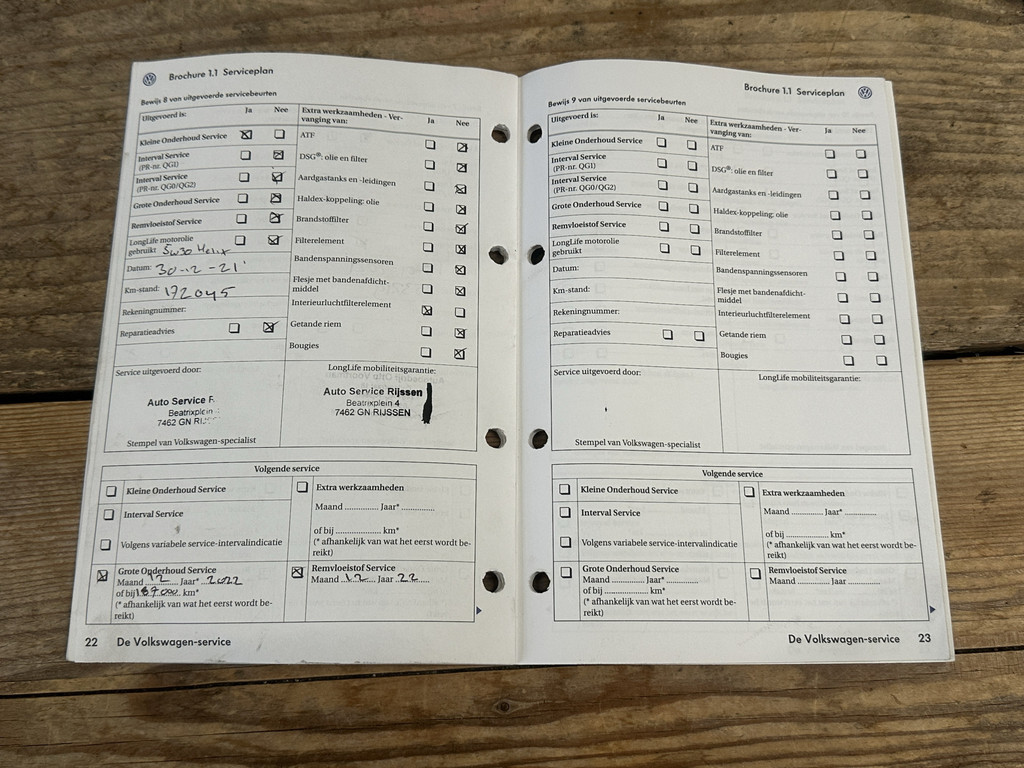 Brochure 1.1 Serviceplan
Bewijs 8 van uitgevoerde servicebeurten
Uitgevoerd is: Ja Nee
Kleine Onderhoud Service
Interval Service
(PR-nr. QG1)
Interval Service
(PR-nr. QG0/QG2)
Grote Onderhoud Service
Remvloeistof Service
LongLife motorolie
gebruikt 5w30 Helix
Datum: 30-12-21
Km-stand: 172045
Rekeningnummer:
Reparatieadvies
Extra werkzaamheden - Ver-
vanging van: Ja Nee
ATF
DSG®: olie en filter
Aardgastanks en -leidingen
Haldex-koppeling; olie
Brandstoffilter
Filterelement
Bandenspanningssensoren
Flesje met bandenafdicht-
middel
Interieurluchtfilterelement
Getande riem
Bougies
Service uitgevoerd door:
Auto Service R
Beatrixplein
7462 GN RIJ
Stempel van Volkswagen-specialist
LongLife mobiliteitsgarantie:
Auto Service Rijssen
Beatrixplein 4
7462 GN RIJSSEN
Volgende service
Kleine Onderhoud Service
Interval Service
Volgens variabele service-intervalindicatie
Grote Onderhoud Service
Maand 12 Jaar* 2022
of bij 187000 km*
(* afhankelijk van wat het eerst wordt be-
reikt)
Extra werkzaamheden
Maand ............ Jaar* ............
of bij ................ km*
(* afhankelijk van wat het eerst wordt be-
reikt)
Remvloeistof Service
Maand 12 Jaar 22
22 De Volkswagen-service
Brochure 1.1 Serviceplan
Bewijs 9 van uitgevoerde servicebeurten
Uitgevoerd is: Ja Nee
Kleine Onderhoud Service
Interval Service
(PR-nr. QG1)
Interval Service
(PR-nr. QG0/QG2)
Grote Onderhoud Service
Remvloeistof Service
LongLife motorolie
gebruikt
Datum:
Km-stand:
Rekeningnummer:
Reparatieadvies
Extra werkzaamheden - Ver-
vanging van: Ja Nee
ATF
DSG®: olie en filter
Aardgastanks en -leidingen
Haldex-koppeling; olie
Brandstoffilter
Filterelement
Bandenspanningssensoren
Flesje met bandenafdicht-
middel
Interieurluchtfilterelement
Getande riem
Bougies
Service uitgevoerd door:
Stempel van Volkswagen-specialist
LongLife mobiliteitsgarantie:
Volgende service
Kleine Onderhoud Service
Interval Service
Volgens variabele service-intervalindicatie
Grote Onderhoud Service
Maand ............ Jaar* ............
of bij ................ km*
(* afhankelijk van wat het eerst wordt be-
reikt)
Extra werkzaamheden
Maand ............ Jaar* ............
of bij ................ km*
(* afhankelijk van wat het eerst wordt be-
reikt)
Remvloeistof Service
Maand ............ Jaar ............
De Volkswagen-service 23